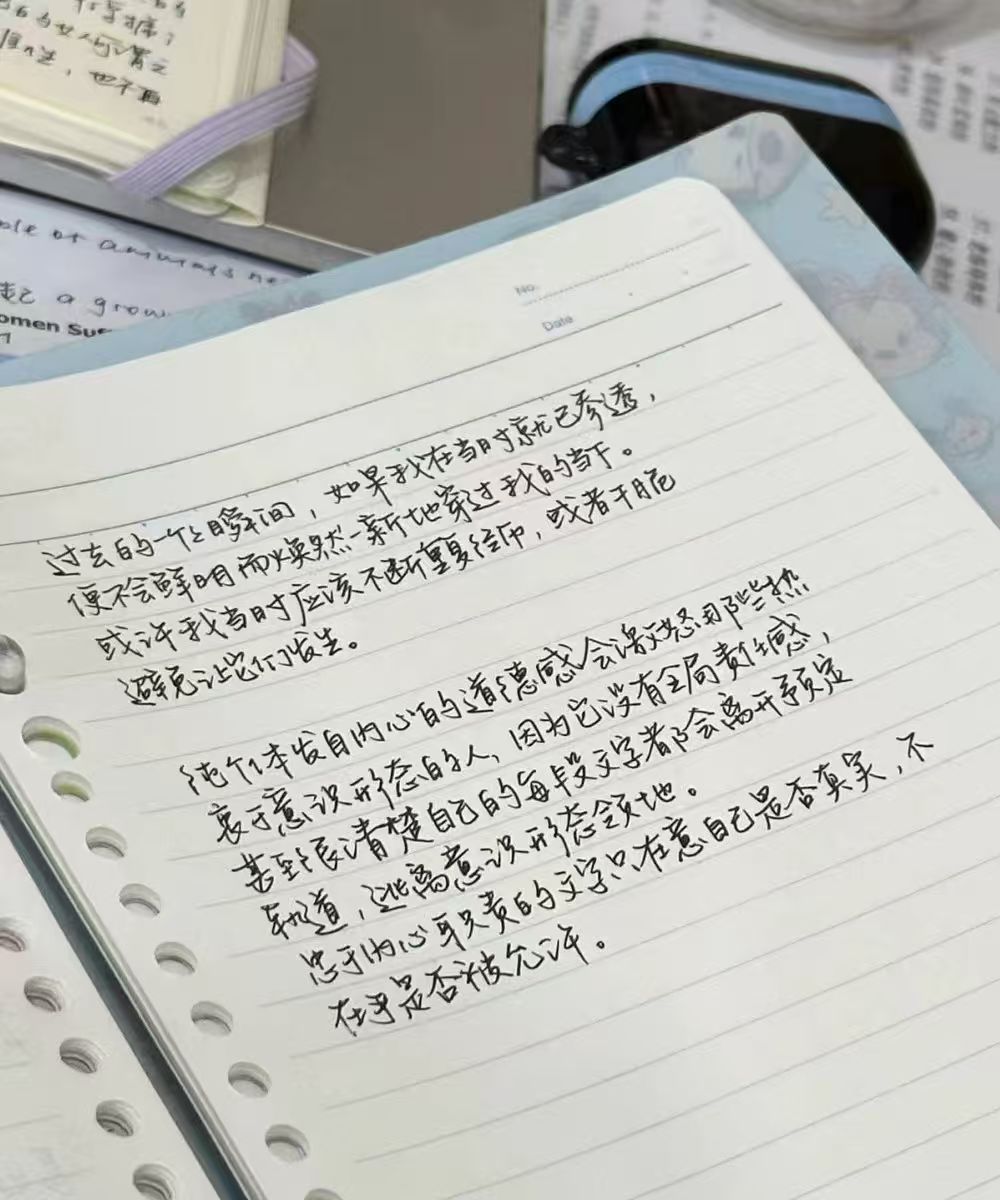 也不再
a grow
omen Su
No.
Date
过去的一个个瞬间，如果我在当时就已参透，
便不会鲜明而焕然一新地穿过我的当下。
或许我当时应该不断重复经历，或者干脆
避免让它们发生。
纯个体发自内心的道德感会激怒那些热
衷于意识形态的人，因为它没有全局责任感，
甚至很清楚自己的每段文字都会离开预定
轨道，逃离意识形态领地。
忠于内心职责的文字只在意自己是否真实，不
在乎是否被允许。